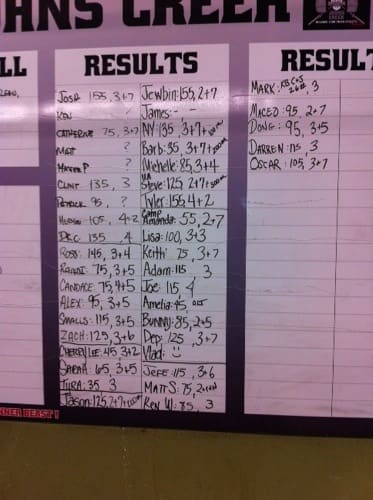 JOHNS CREEK
RESULTS
JOSH 155, 3+7
KEN
CATHERINE 75, 3+7
MATT ?
?
CLINT 135, 3
PATRICK 95, ?
HUDSON 105, 4+2
DEC 135, 4
ROSS 145, 3+4
75, 3+5
CANDACE 75, 4+5
ALEX 95, 3+5
SMALLS: 115, 3+5
ZACH: 125, 3+6
CHERRYLEE: 45, 3+2
SARAH: 65, 3+5
TYRA: 35 3
Jason: 125, 2+7+
Jewbin: 155, 2+7
James: - -
NY: 135, 3+7+
Barb: 35, 3+7+
Michelle: 85, 3+4
Steve: 125, 2+7+
Tyler: 155, 4+2
Camp
Amanda: 55, 2+7
Lisa: 100, 3+3
Keith: 75, 3+7
Adam: 115 3
Joe: 115 4
Amelia: 45,
BUNNY: 85, 2+5
Dep: 125, 3+7
Vlad:
JEFE: 115, 3+6
MATT S: 75, 2+
Kev W: 85, 3
RESULT
MARK: 3
MACEO: 95, 2+7
DONG: 95, 3+5
DARREN: 115 3
OSCAR: 105, 3+7
INNER BEAST!